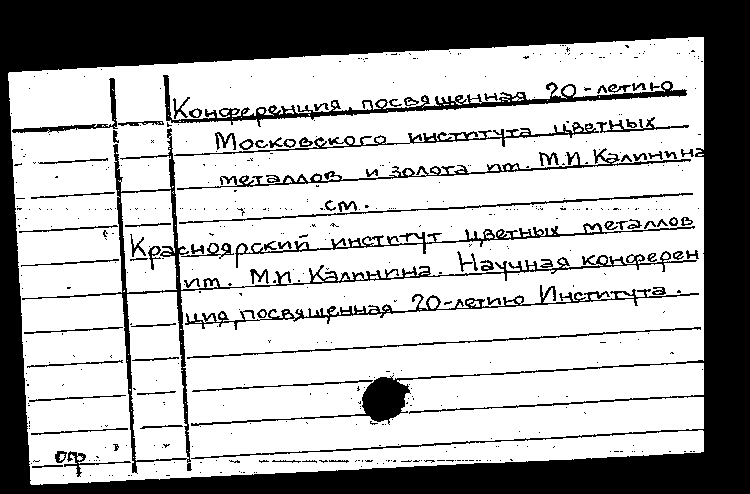 Конференция, посвященная 20-летию
Московского института цветных
металлов и золота им. М.И. Калинина
см.
Красноярский институт цветных металлов
им. М.И. Калинина. Научная конферен
ция, посвященная 20-летию Института.